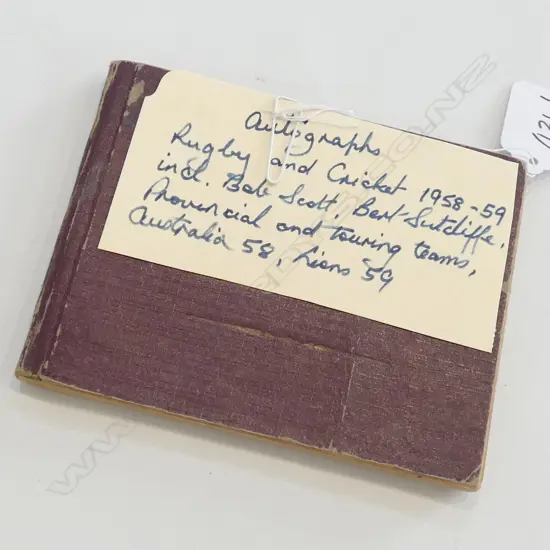 Autographs
Rugby and Cricket 1958-59
incl. Bob Scott, Bert Sutcliffe,
Provincial and touring teams,
Australia 58, Lions '59